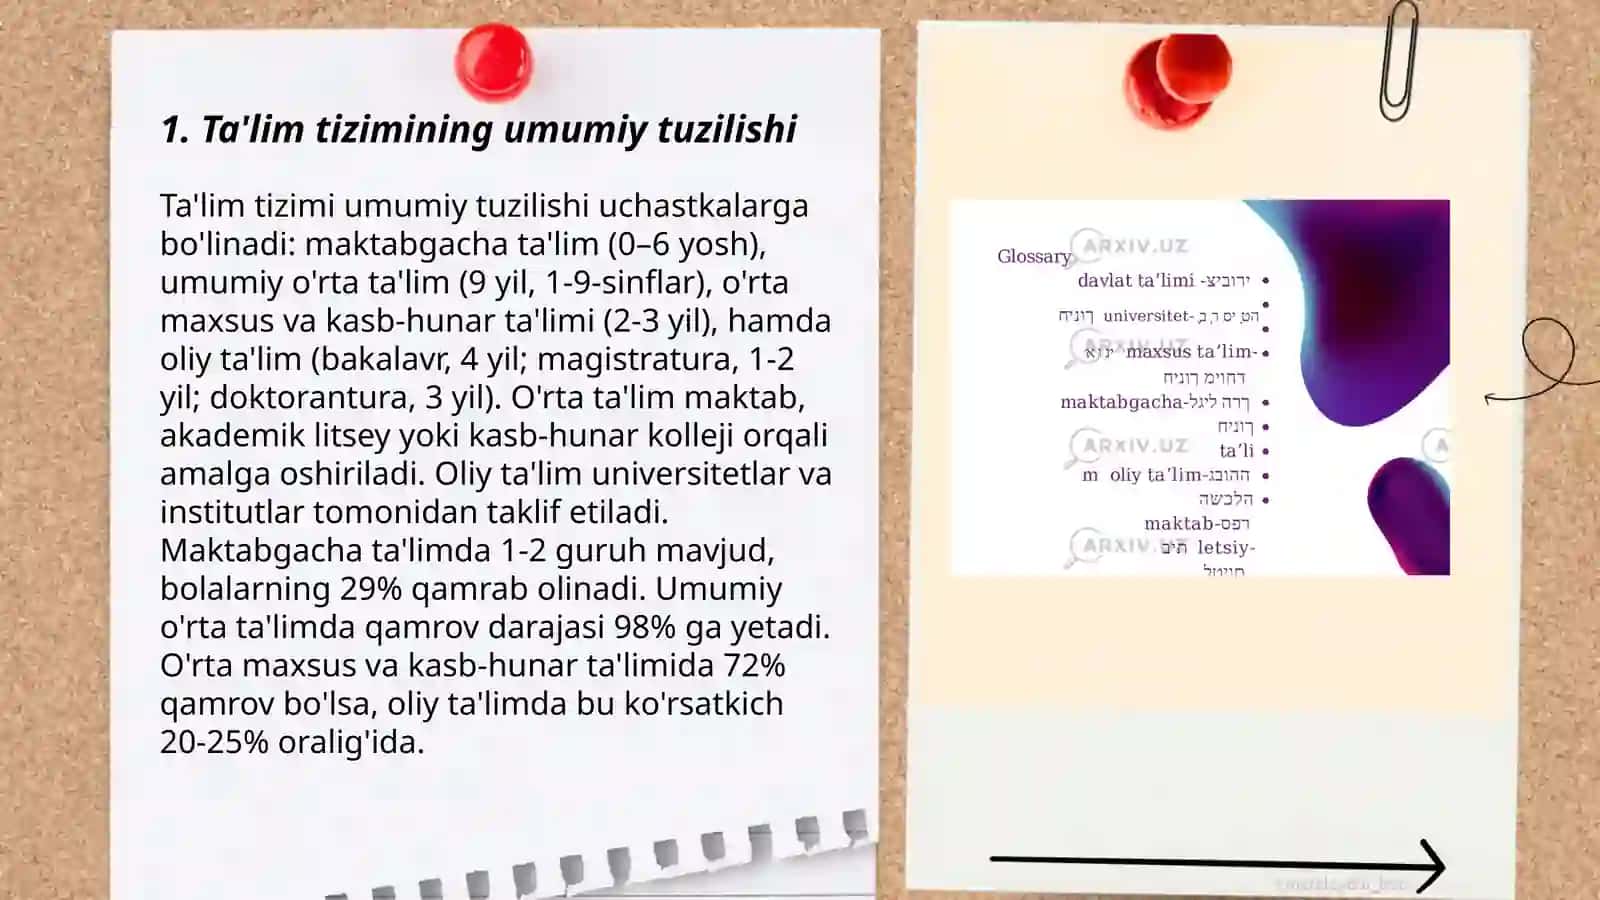 1. Ta'lim tizimining umumiy tuzilishi
Ta'lim tizimi umumiy tuzilishi uchastkalarga
bo'linadi: maktabgacha ta'lim (0–6 yosh),
umumiy o'rta ta'lim (9 yil, 1-9-sinflar), o'rta
maxsus va kasb-hunar ta'limi (2-3 yil), hamda
oliy ta'lim (bakalavr, 4 yil; magistratura, 1-2
yil; doktorantura, 3 yil). O'rta ta'lim maktab,
akademik litsey yoki kasb-hunar kolleji orqali
amalga oshiriladi. Oliy ta'lim universitetlar va
institutlar tomonidan taklif etiladi.
Maktabgacha ta'limda 1-2 guruh mavjud,
bolalarning 29% qamrab olinadi. Umumiy
o'rta ta'limda qamrov darajasi 98% ga yetadi.
O'rta maxsus va kasb-hunar ta'limida 72%
qamrov bo'lsa, oliy ta'limda bu ko'rsatkich
20-25% oralig'ida.
ARXIV.UZ
Glossary
davlat ta’limi -ציבורי
חינוך universitet-
ARXIV.UZ
maxsus ta’lim-
חינוך מיוחד
maktabgacha-לגיל הרך
חינוך
ARXIV.UZ
ta’li
m oliy ta’lim-גבוהה
השכלה
maktab-ספר
ARXIV.UZ
בית letsiy-